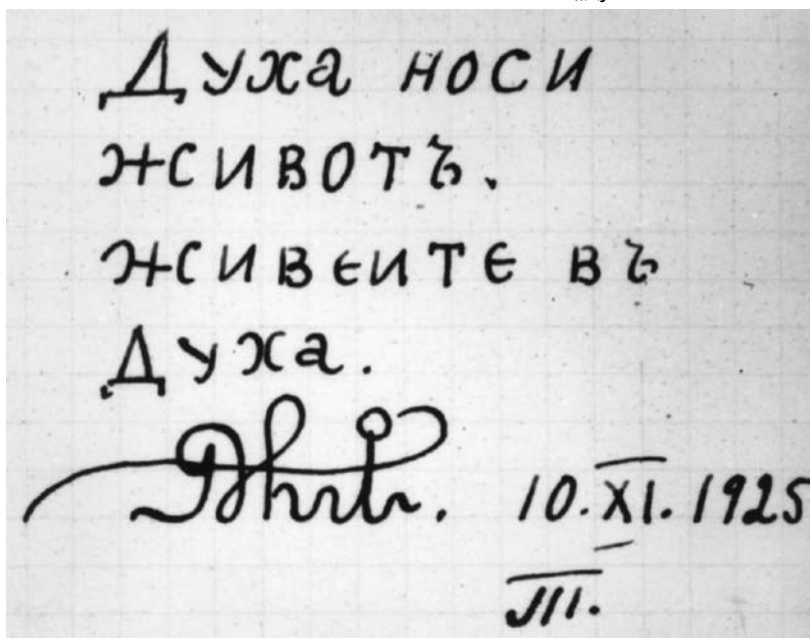 Духа носи
животъ.
живеите въ
Духа.
10. XI. 1925
III.